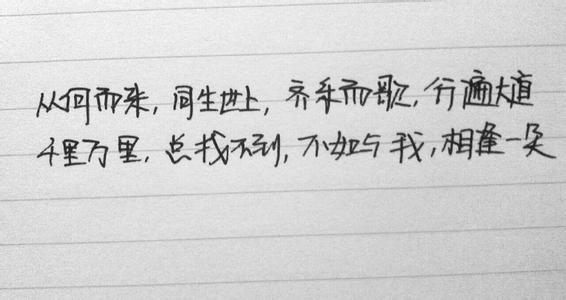 从何而来,同生世上,齐乐而歌,行遍大道
千里万里,总找不到,不如与我,相逢一笑